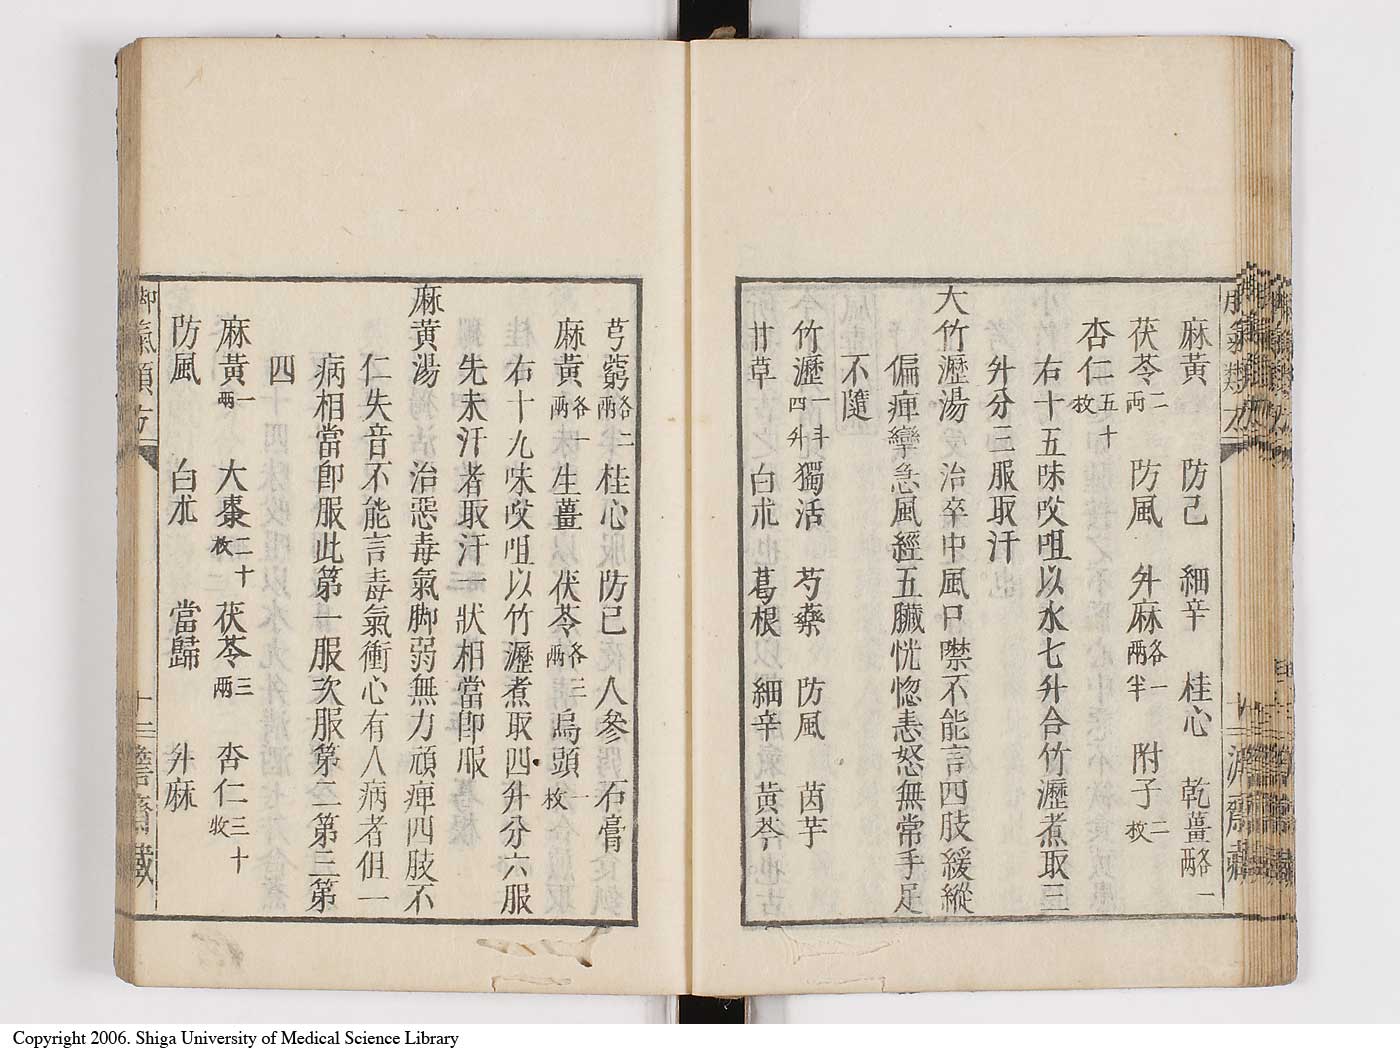 麻黃 防己 細辛 桂心 乾薑各一兩
茯苓二兩 防風 升麻各一兩半 附子二枚
杏仁五十枚
右十五味㕮咀以水七升合竹瀝煮取三
升分三服取汗
大竹瀝湯 治卒中風口噤不能言四肢緩縱
偏痺攣急風經五臟恍惚恚怒無常手足
不隨
竹瀝一斗四升 獨活 芍藥 防風 茵芋
甘草 白朮 葛根 細辛 黃芩
芎藭各二兩 桂心 防己 人參 石膏
麻黃各一兩 生薑 茯苓各三兩 烏頭一枚
右十九味㕮咀以竹瀝煮取四升分六服
先未汗者取汗一狀相當卽服
麻黃湯 治惡毒氣脚弱無力頑痺四肢不
仁失音不能言毒氣衝心有人病者但一
病相當卽服此第一服次服第二第三第
四
麻黃一兩 大棗二十枚 茯苓三兩 杏仁三十枚
防風 白朮 當歸 升麻
脚氣類方 十二 濟齋藏
Copyright 2006. Shiga University of Medical Science Library